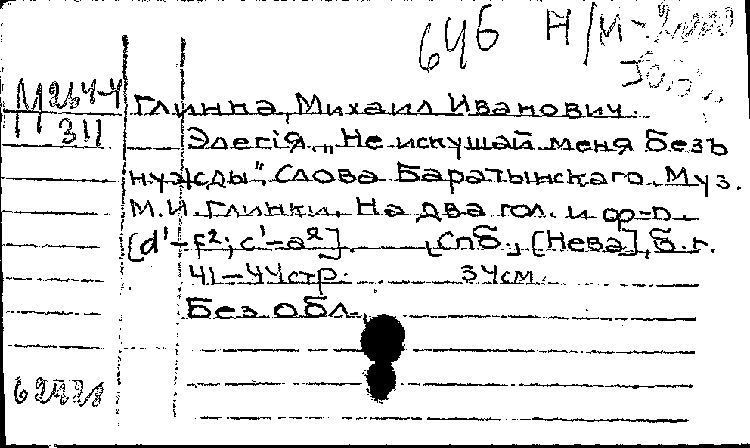 646 Н/М-
М264-4
311
Глинка, Михаил Иванович.
Элегія „Не искушай меня безъ
нужды". Слова Баратынскаго. Муз.
М.И. Глинки. На два гол. и ф-п.
[d¹-f²; c¹-a²]. Спб., [Нева], б.г.
41-44 стр. 34 см.
Без обл.